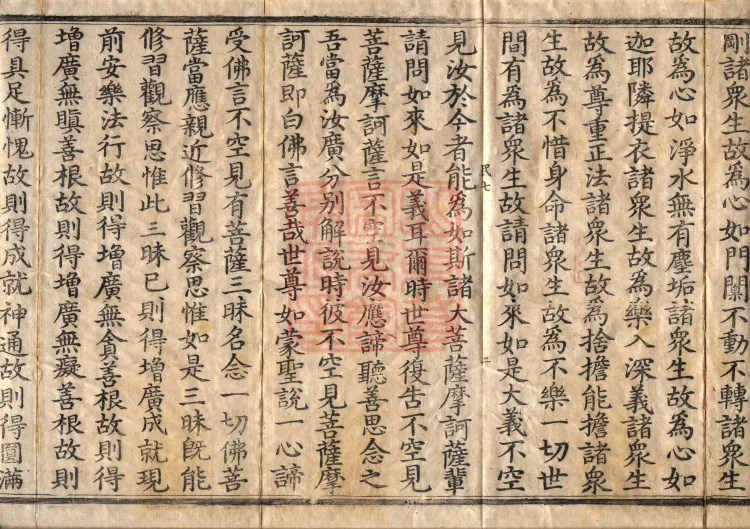 剛諸衆生故為心如門閫不動不轉諸衆生
故為心如淨水無有塵垢諸衆生故為心如
迦耶隣提衣諸衆生故為樂入深義諸衆生
故為尊重正法諸衆生故為捨擔能擔諸衆
生故為不惜身命諸衆生故為不樂一切世
間有為諸衆生故請問如來如是大義不空
民七
二
見汝於今者能為如斯諸大菩薩摩訶薩輩
請問如來如是義耳爾時世尊復告不空見
菩薩摩訶薩言不空見汝應諦聽善思念之
吾當為汝廣分別解說時彼不空見菩薩摩
訶薩即白佛言善哉世尊如蒙聖說一心諦
受佛言不空見有菩薩三昧名念一切佛菩
薩當應親近修習觀察思惟如是三昧旣能
修習觀察思惟此三昧已則得增廣成就現
前安樂法行故則得增廣無貪善根故則得
增廣無瞋善根故則得增廣無癡善根故則
得具足慚愧故則得成就神通故則得圓滿